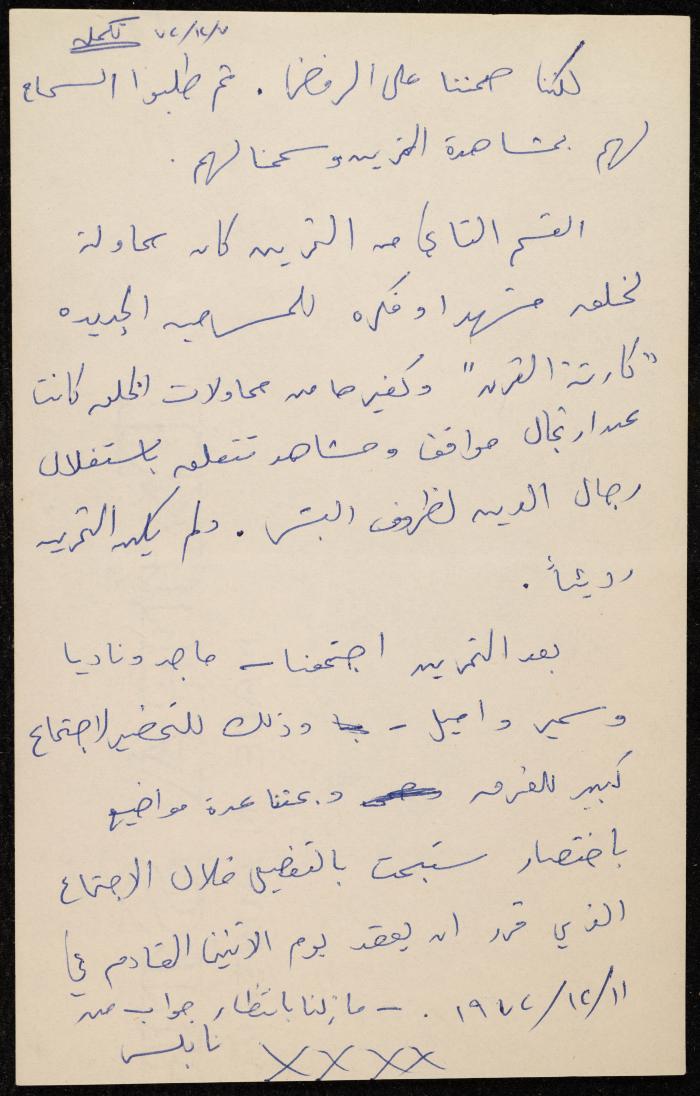 ٧٢/١٢/٧ تكملة
لكننا صممنا على الرفض. ثم طلبوا السماح
لهم بمشاهدة التمرين وسمحنا لهم.
القسم الثاني من التمرين كان محاولة
لخلق مشهد او فكره للمسرحيه الجديده
"كارثة القرن" وكغيرها من محاولات الخلق كانت
عن ارتجال مواقف ومشاهد تتعلق باستغلال
رجال الدين لظروف البشر. ولم يكن التمرين
رديئاً.
بعد التمرين اجتمعنا – ماجد وناديا
وسمير واميل – وذلك للتحضير لاجتماع
كبير للفرقه وبحثنا عدة مواضيع
باختصار ستبحث بالتفصيل خلال الاجتماع
الذي قرر ان يعقد يوم الاثنين القادم في
١١/١٢/١٩٧٢. – ما زلنا بانتظار جواب من
نابلس
XXXX